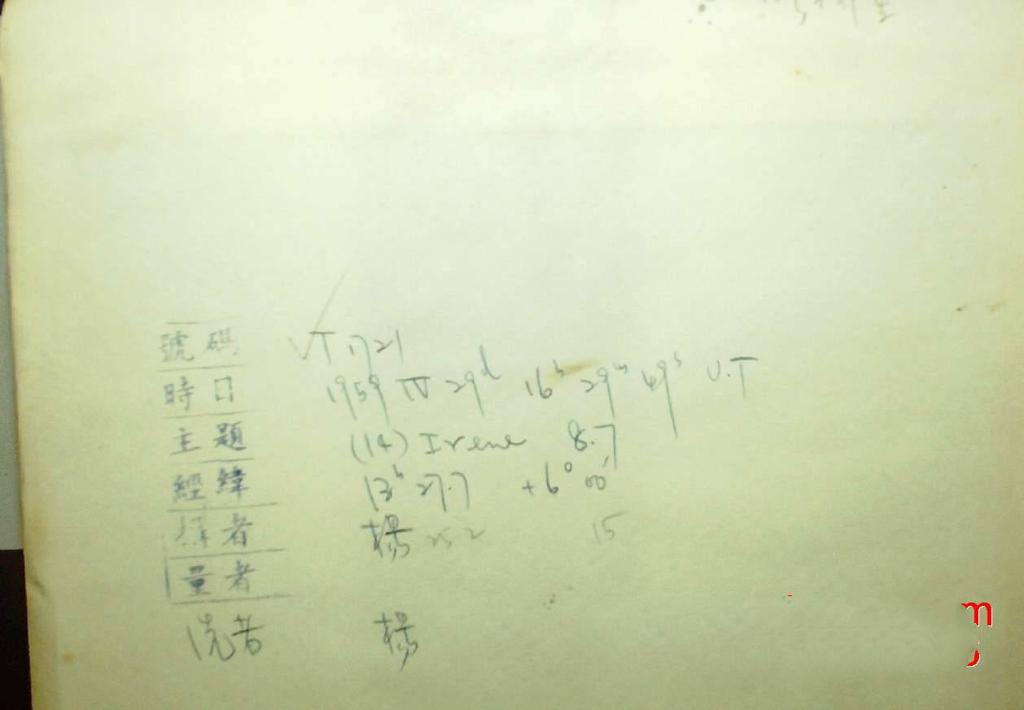 號碼 VT 1721
時日 1959 IV 29d 16h 29m 49s U.T
主題 (14) Irene 8.7
經緯 13h 27.7 +6° 00'
者 楊 25 2 15
量者
洗者 楊